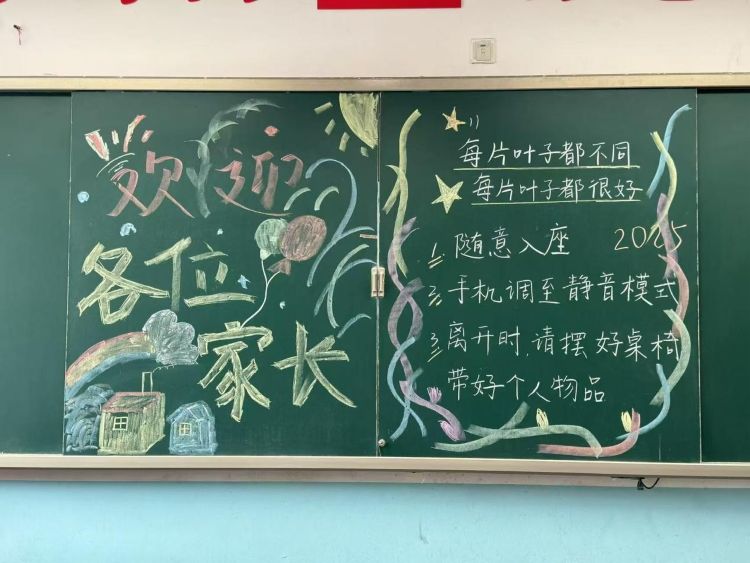 欢迎
各位
家长
每片叶子都不同
每片叶子都很好
1. 随意入座 2025
2. 手机调至静音模式
3. 离开时,请摆好桌椅
带好个人物品